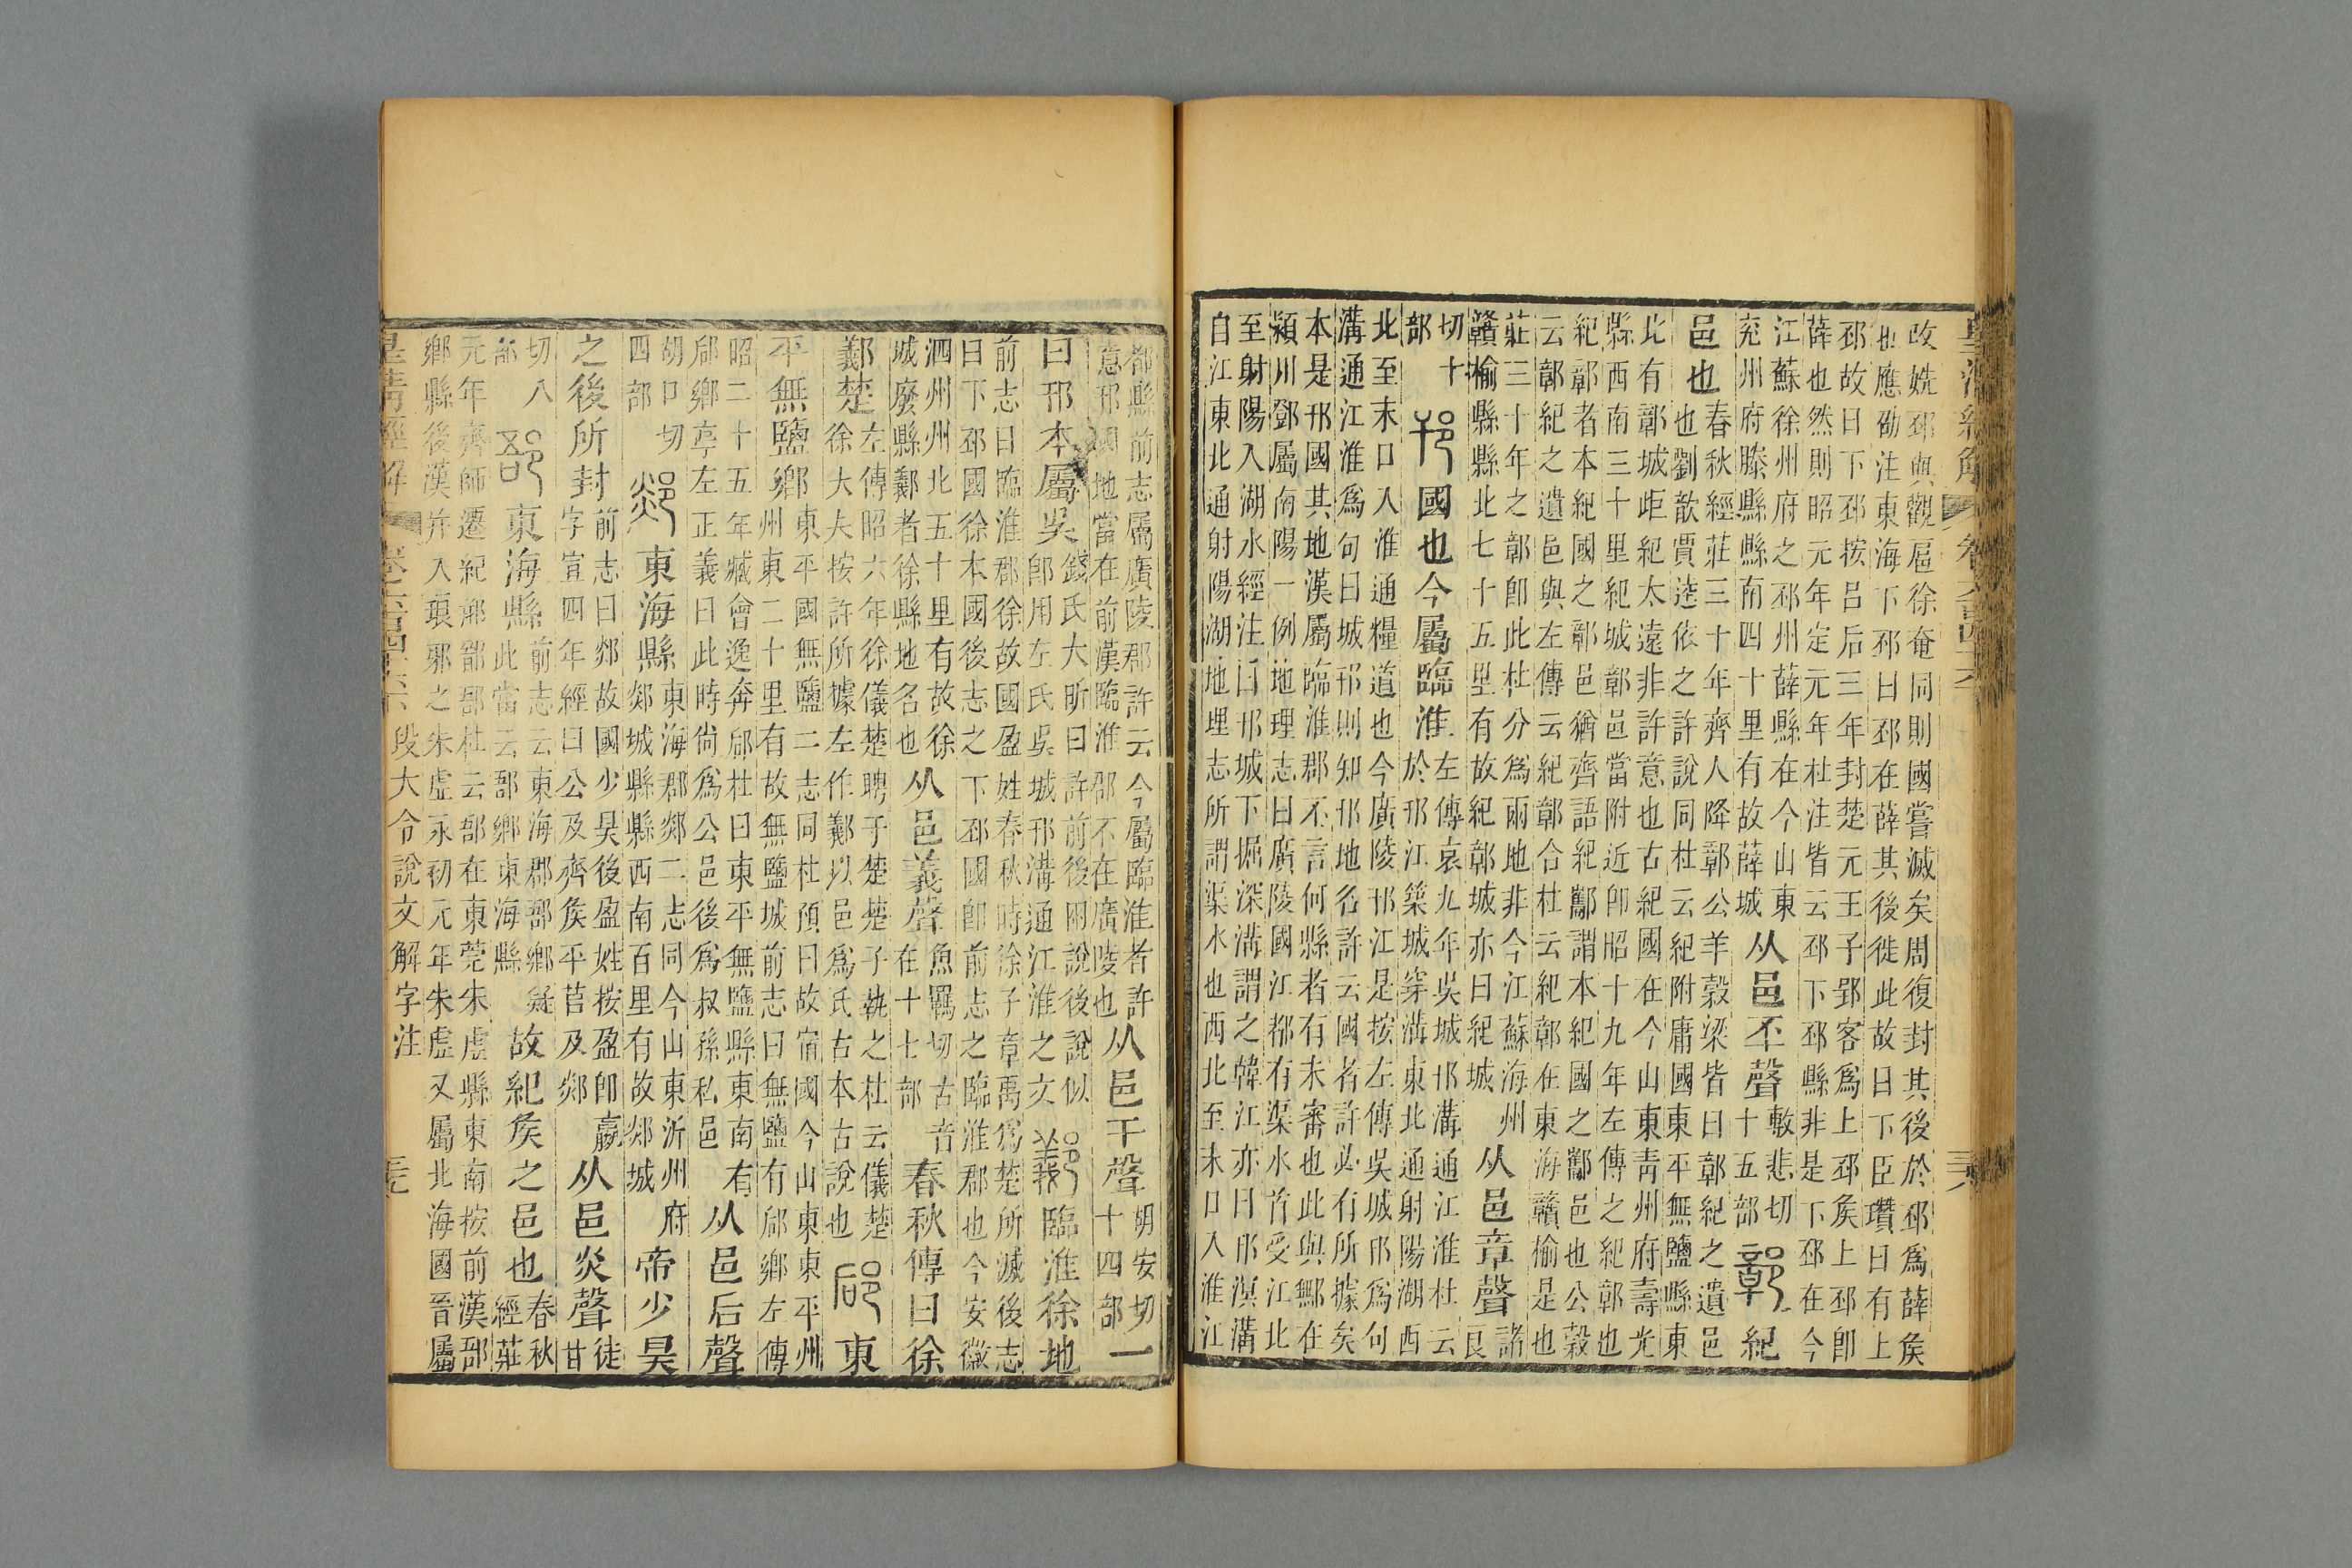 皇清經解 卷六百四十六 三六
改姺邳與觀扈徐奄同則國嘗滅矣周復封其後於邳爲薛矦
也應劭注東海下邳曰邳在薛其後徙此故曰下臣瓚曰有上
邳故曰下邳按呂后三年封楚元王子郢客爲上邳矦上邳卽
薛也然則昭元年定元年杜注皆云邳下邳縣非是下邳在今
江蘇徐州府之邳州薛縣在今山東
兖州府滕縣縣南四十里有故薛城
从邑丕聲
敷悲切
十五部
鄣 紀
邑也
春秋經莊三十年齊人降鄣公羊榖梁皆曰鄣紀之遺邑
也劉歆賈逵依之許說同杜云紀附庸國東平無鹽縣東
北有鄣城歫紀太遠非許意也古紀國在今山東靑州府壽光
縣西南三十里紀城鄣邑當附近卽昭十九年左傳之紀鄣也
紀鄣者本紀國之鄣邑猶齊語紀酅謂本紀國之酅邑也公榖
云鄣紀之遺邑與左傳云紀鄣合杜云紀鄣在東海贛榆是也
莊三十年之鄣卽此杜分爲兩地非今江蘇海州
贛榆縣縣北七十五里有故紀鄣城亦曰紀城
从邑章聲
諸
良
切十
部
邗 國也今屬臨淮
左傳哀九年吳城邗溝通江淮杜云
於邗江築城穿溝東北通射陽湖西
北至末口入淮通糧道也今廣陵邗江是按左傳吳城邗爲句
溝通江淮爲句曰城邗則知邗地名許云國者許必有所據矣
本是邗國其地漢屬臨淮郡不言何縣者有未審也此與鄦在
潁川鄧屬南陽一例地理志曰廣陵國江都有渠水首受江北
至射陽入湖水經注曰邗城下掘深溝謂之韓江亦曰邗溟溝
自江東北通射陽湖地理志所謂渠水也西北至末口入淮江
都縣前志屬廣陵郡許云今屬臨淮者許
意邗國地當在前漢臨淮郡不在廣陵也
从邑干聲
胡安切
十四部
一
曰邗本屬吳
錢氏大昕曰許前後兩說後說似
卽用左氏吳城邗溝通江淮之文
䣡 臨淮徐地
前志曰臨淮郡徐故國盈姓春秋時徐子章禹爲楚所滅後志
曰下邳國徐本國後志之下邳國卽前志之臨淮郡也今安徽
泗州州北五十里有故徐
城廢縣䣡者徐縣地名也
从邑義聲
魚羈切古音
在十七部
春秋傳曰徐
䣡楚
左傳昭六年徐儀楚聘于楚楚子執之杜云儀楚
徐大夫按許所據左作䣡以邑爲氏古本古說也
郈 東
平無鹽鄉
東平國無鹽二志同杜預曰故宿國今山東東平州
州東二十里有故無鹽城前志曰無鹽有郈鄉左傳
昭二十五年臧會逸奔郈杜曰東平無鹽縣東南有
郈鄉亭左正義曰此時尙爲公邑後爲叔孫私邑
从邑后聲
胡口切
四部
郯 東海縣
東海郡郯二志同今山東沂州府
郯城縣縣西南百里有故郯城
帝少昊
之後所封
前志曰郯故國少昊後盈姓按盈卽嬴
字宣四年經曰公及齊矦平莒及郯
从邑炎聲
徒
甘
切八
部
郚 東海縣
前志云東海郡郚鄉疑
此當云郚鄉東海縣
故紀矦之邑也
春秋
經莊
元年齊師遷紀郱鄑郚杜云郚在東莞朱虛縣東南按前漢郚
鄉縣後漢并入琅邪之朱虛永初元年朱虛又屬北海國晉屬
皇清經解 卷六百四十六 段大令說文解字注 三七